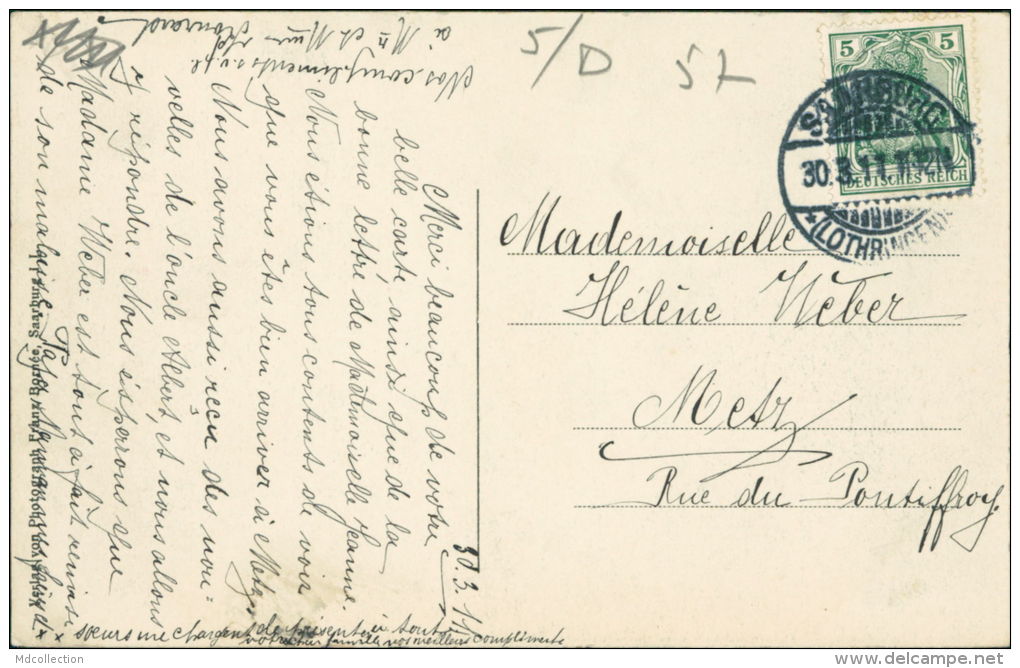 30.3.11.
Merci beaucoup de votre
belle carte, ainsi que de la
bonne lettre de Mademoiselle Jeanne.
Nous étions tous contents de voir
que vous êtes bien arrivés à Metz.
Nous avons aussi reçu des nou-
velles de l'oncle Albert, et nous allons
y répondre. Nous espérons que
Madame Weber est tout à fait remise
de son malaise.
sœurs me chargent de présenter à toute
votre chère famille nos meilleurs compliments
Nos compliments s.v.p.
à Mr et Mme
5/D 57
5 5
DEUTSCHES REICH
SAARBURG
30.3.11.
(LOTHRINGEN)
Mademoiselle
Hélène Weber
Metz
Rue du Pontiffroy.
von Photograph Franz Saarburg
Mdcollection
delcampe.net